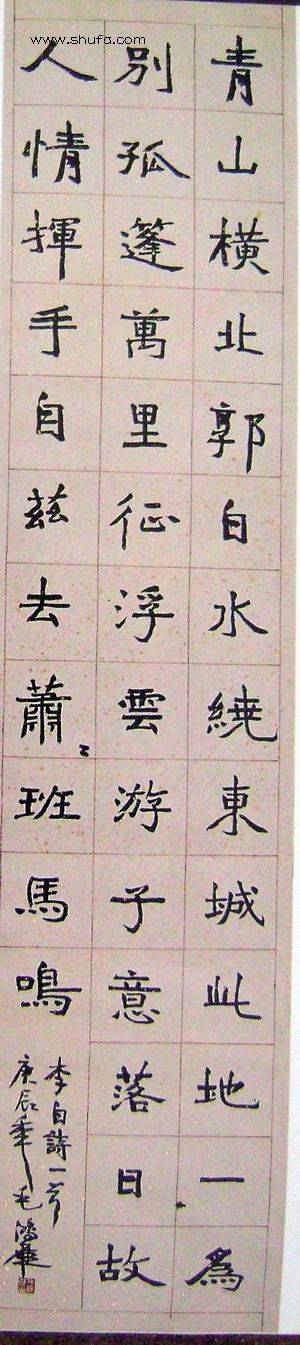 www.shufa.com
青山橫北郭白水繞東城此地一為
別孤蓬萬里征浮雲游子意落日故
人情揮手自茲去蕭〻班馬鳴
李白詩一首
庚辰年毛鴻